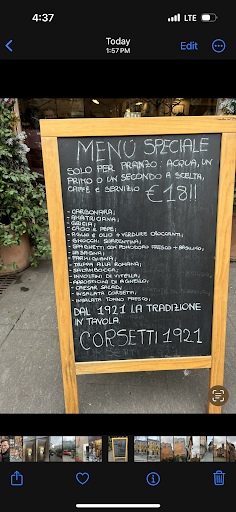 4:37
LTE
Today
1:57 PM
Edit
MENÙ SPECIALE
SOLO PER PRANZO: ACQUA, UN
PRIMO O UN SECONDO A SCELTA,
CAFFÈ E SERVIZIO €18!!
- CARBONARA;
- AMATRICIANA;
- GRICIA;
- CACIO E PEPE;
- AGLIO E OLIO + VERDURE CROCCANTI;
- GNOCCHI SORRENTINA;
- SPAGHETTI CON POMODORO FRESCO + BASILICO;
- LASAGNA;
- PARMIGIANA;
- TRIPPA ALLA ROMANA;
- SALTIMBOCCA;
- INVOLTINI DI VITELLA;
- ARROSTICINI DI AGNELLO;
- CAESAR SALAD;
- INSALATA CORSETTI;
- INSALATA TONNO FRESCO;
DAL 1921 LA TRADIZIONE
IN TAVOLA.
CORSETTI 1921